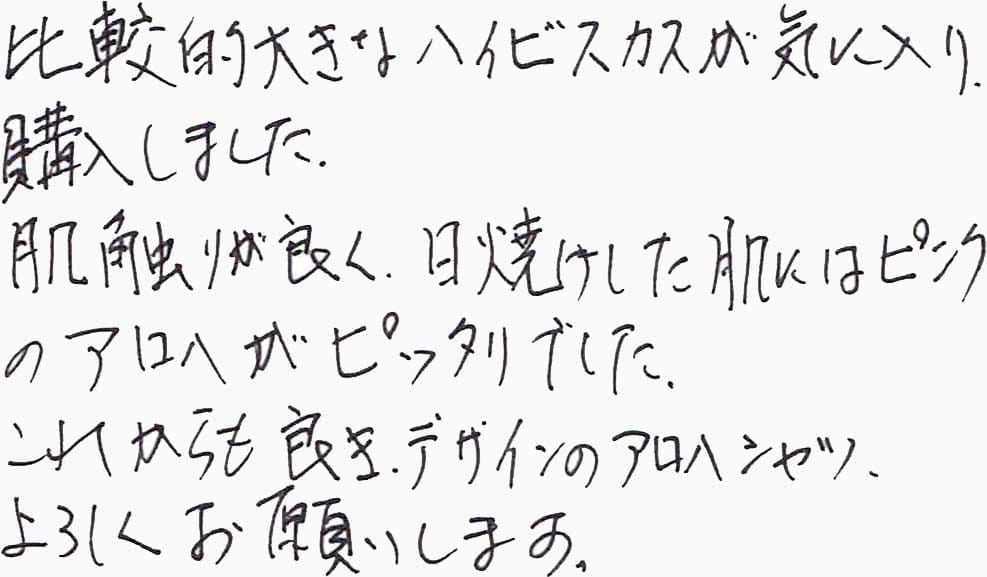 比較的大きなハイビスカスが気に入り、
購入しました。
肌触りが良く、日焼けした肌にはピンク
のアロハがピッタリでした。
これからも良き、デザインのアロハシャツ、
よろしくお願いします。